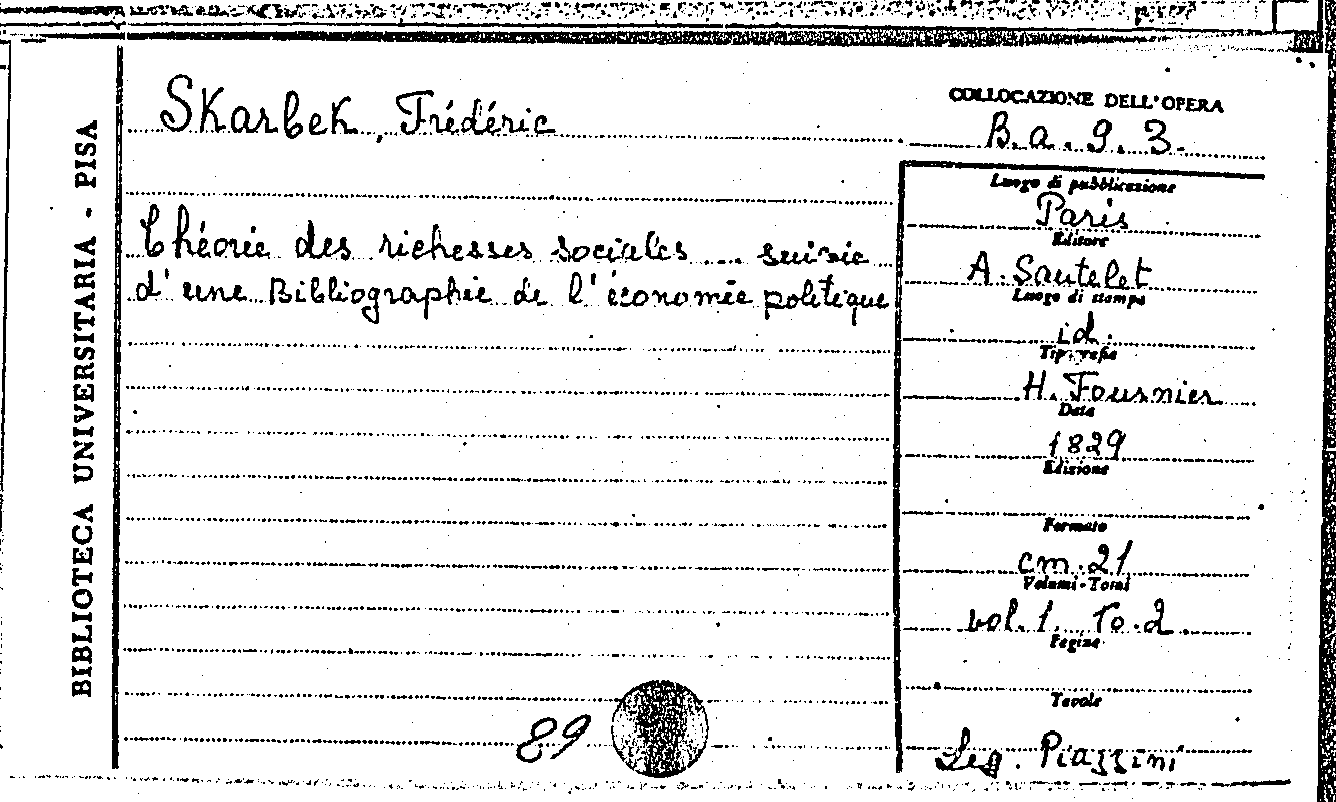 BIBLIOTECA UNIVERSITARIA - PISA
Skarbek, Frédéric
Théorie des richesses sociales ... suivie
d'une Bibliographie de l'économie politique
89
COLLOCAZIONE DELL'OPERA
B.a.9.3.
Luogo di pubblicazione
Paris
Editore
A. Sautelet
Luogo di stampa
id.
Tipografia
H. Fournier
Data
1829
Edizione
Formato
cm.21
Volumi-Tomi
vol.1. To.2.
Pagine
Tavole
Leg. Piazzini